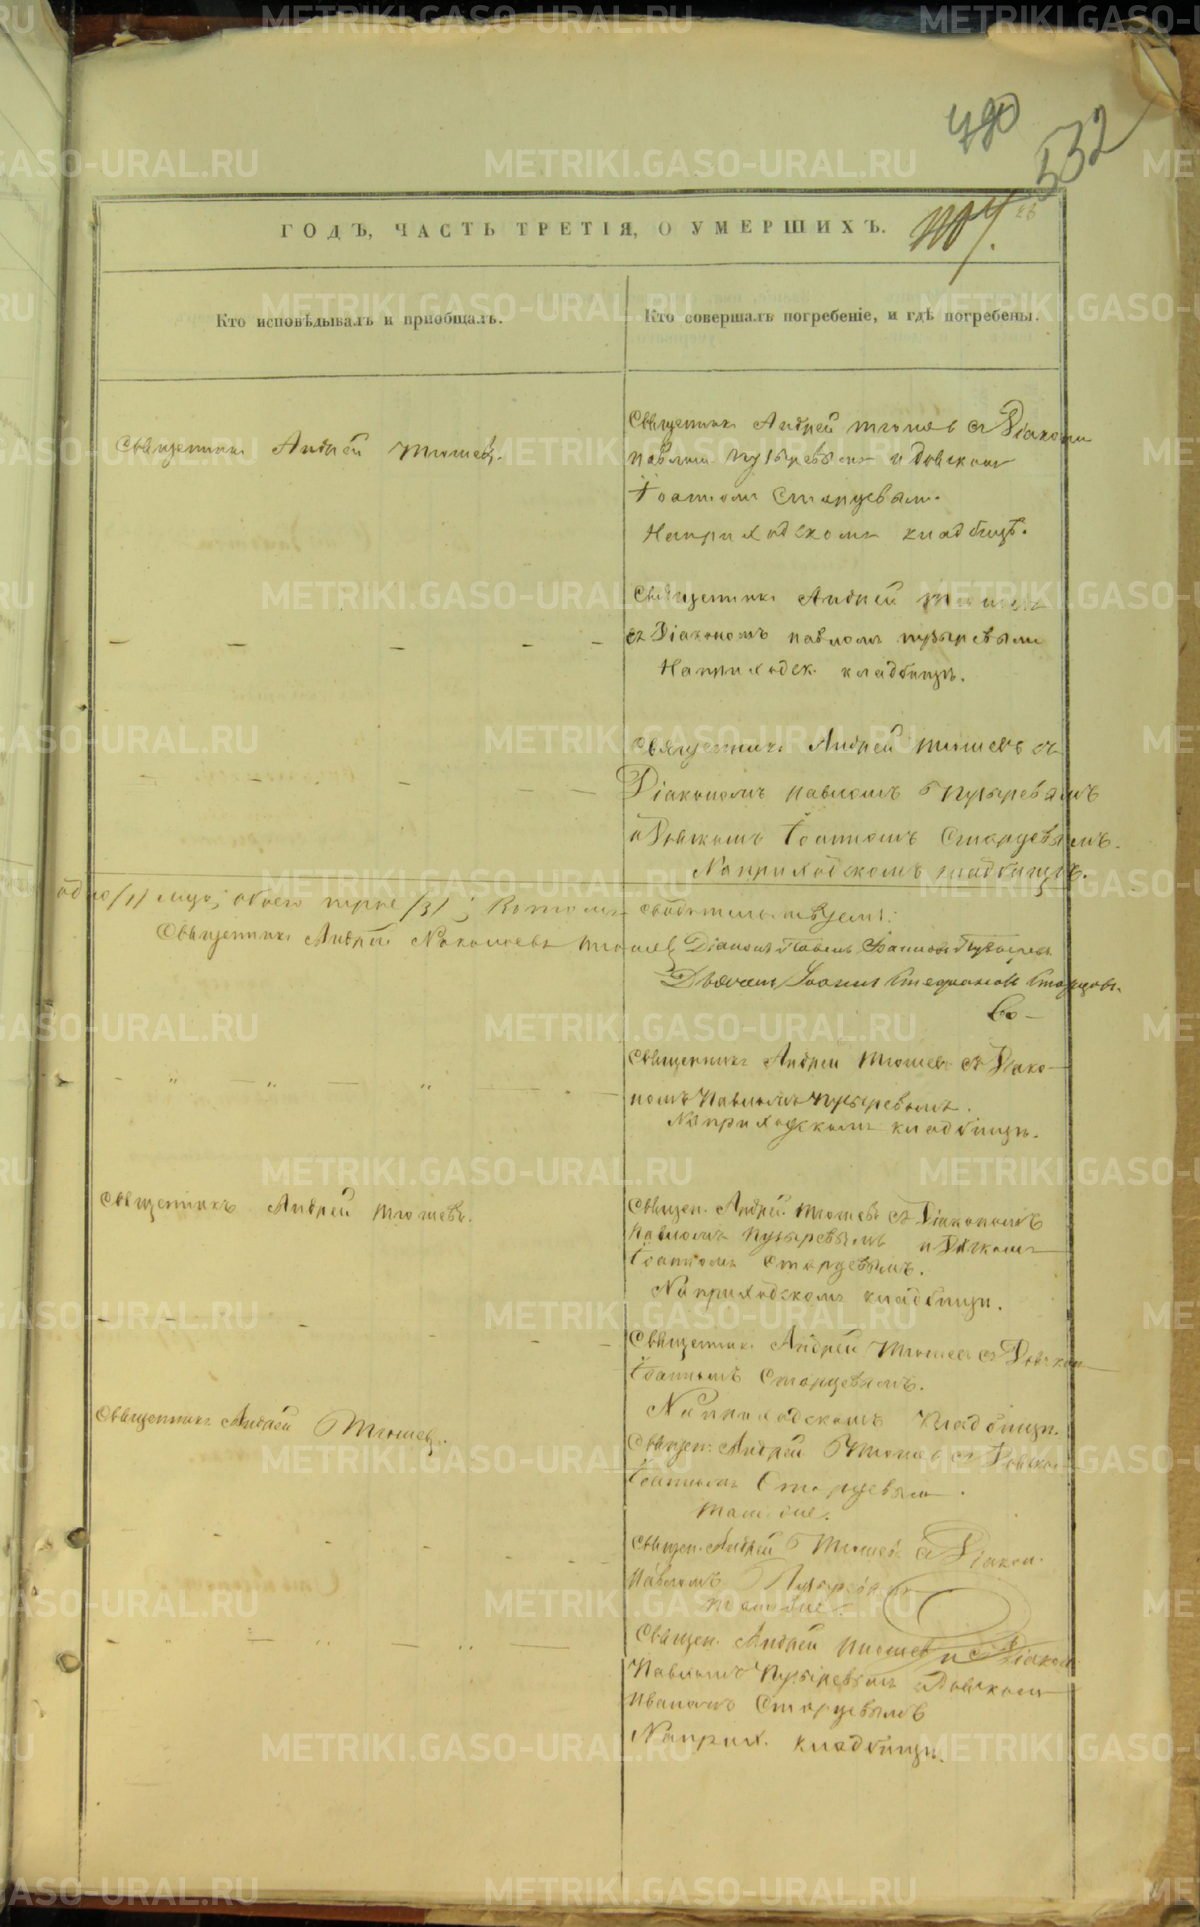 780
532
ГОДЪ, ЧАСТЬ ТРЕТІЯ, О УМЕРШИХЪ.
Кто исповѣдывалъ и пріобщалъ.
Кто совершалъ погребеніе, и гдѣ погребены.
Священникъ Андрей Тюшевъ.
Священникъ Андрей Тюшевъ съ Діакономъ
Павломъ Пузыревымъ и Дьячкомъ
Іоанномъ Старцевымъ.
На приходскомъ кладбищѣ.
Священникъ Андрей Тюшевъ
съ Діакономъ Павломъ Пузыревымъ
На приходск. кладбищѣ.
Священникъ Андрей Тюшевъ съ
Діакономъ Павломъ Пузыревымъ
и Дьячкомъ Іоанномъ Старцевымъ.
На приходскомъ кладбищѣ.
одно /1/ обоего трое /3/;
Священникъ Андрей Тюшевъ Діаконъ Павелъ Пузыревъ
Дьячекъ Іоаннъ Стефановъ Старцовъ.
Священникъ Андрей Тюшевъ съ Діако-
номъ Павломъ Пузыревымъ.
На приходскомъ кладбищѣ.
Священникъ Андрей Тюшевъ.
Священ. Андрей Тюшевъ съ Діакономъ
Павломъ Пузыревымъ и Дьячкомъ
Іоанномъ Старцевымъ.
На приходскомъ кладбищѣ.
Священник. Андрей Тюшевъ съ Дьячком
Іоанномъ Старцевымъ.
На приходскомъ кладбищѣ.
Священникъ Андрей Тюшевъ.
Священ. Андрей Тюшевъ съ Дьячко
Іоанномъ Старцевымъ.
тамъ же.
Священ. Андрей Тюшевъ съ Діакон.
Павломъ Пузыревымъ
тамъ же.
Священ. Андрей Тюшевъ съ Діакон
Павломъ Пузыревымъ и Дьячкомъ
Иваномъ Старцевымъ
На прих. кладбищѣ.
METRIKI.GASO-URAL.RU